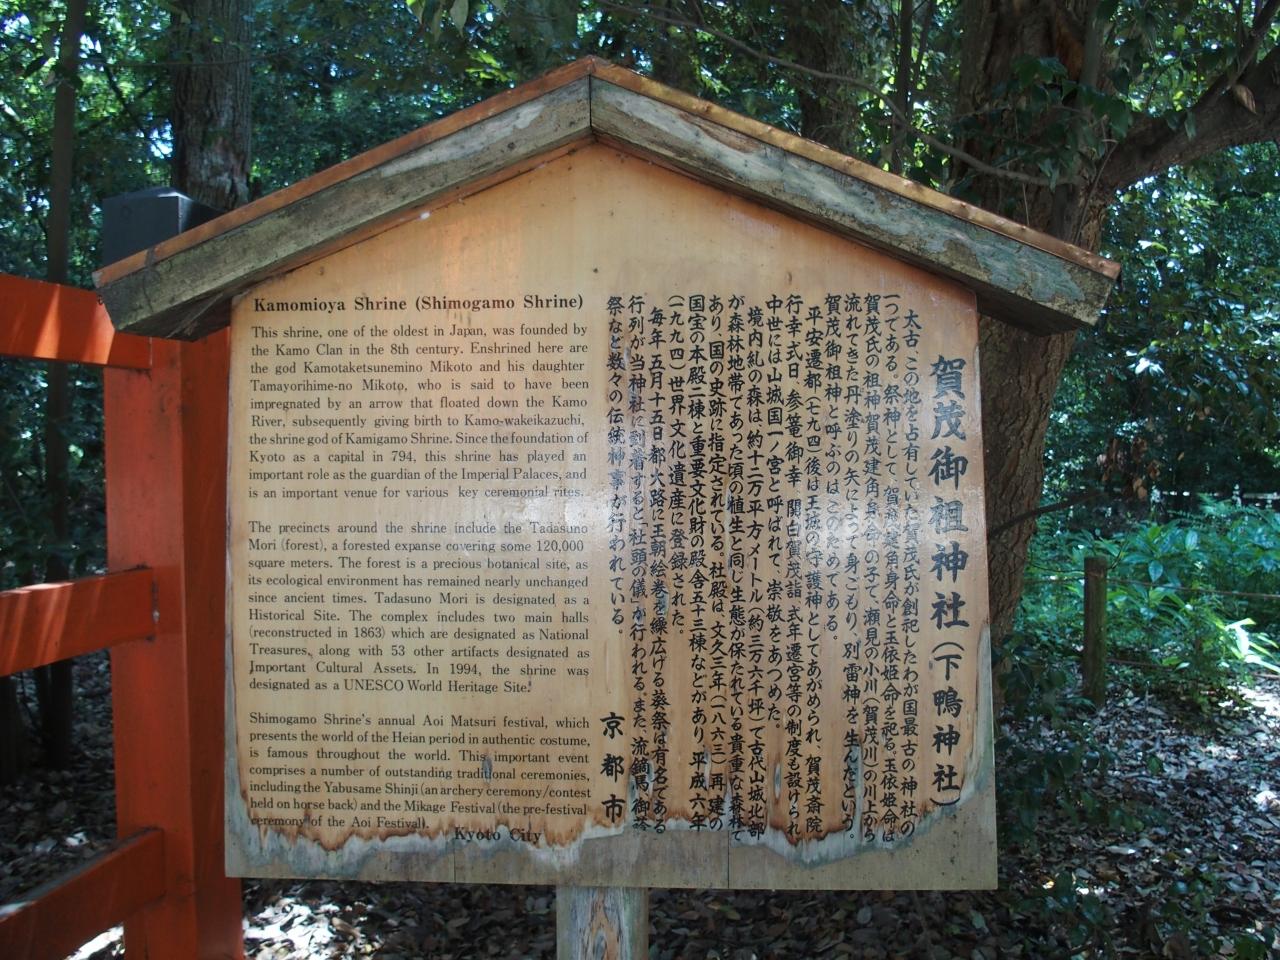 Kamomioya Shrine (Shimogamo Shrine)
This shrine, one of the oldest in Japan, was founded by
the Kamo Clan in the 8th century. Enshrined here are
the god Kamotaketsunemino Mikoto and his daughter
Tamayorihime-no Mikoto, who is said to have been
impregnated by an arrow that floated down the Kamo
River, subsequently giving birth to Kamo-wakeikazuchi,
the shrine god of Kamigamo Shrine. Since the foundation of
Kyoto as a capital in 794, this shrine has played an
important role as the guardian of the Imperial Palaces, and
is an important venue for various key ceremonial rites.
The precincts around the shrine include the Tadasuno
Mori (forest), a forested expanse covering some 120,000
square meters. The forest is a precious botanical site, as
its ecological environment has remained nearly unchanged
since ancient times. Tadasuno Mori is designated as a
Historical Site. The complex includes two main halls
(reconstructed in 1863) which are designated as National
Treasures, along with 53 other artifacts designated as
Important Cultural Assets. In 1994, the shrine was
designated as a UNESCO World Heritage Site.
Shimogamo Shrine's annual Aoi Matsuri festival, which
presents the world of the Heian period in authentic costume,
is famous throughout the world. This important event
comprises a number of outstanding traditional ceremonies,
including the Yabusame Shinji (an archery ceremony/contest
held on horse back) and the Mikage Festival (the pre-festival
ceremony of the Aoi Festival).
Kyoto City
賀茂御祖神社(下鴨神社)
太古、この地を占有していた賀茂氏が創祀したわが国最古の神社の
一つである。祭神として、賀茂建角身命と玉依姫命を祀る。玉依姫命は
賀茂氏の祖神賀茂建角身命の子で、瀬見の小川(賀茂川)の川上から
流れてきた丹塗りの矢によって身ごもり、別雷神を生んだという。
賀茂御祖神と呼ぶのは、このためである。
平安遷都(七九四)後は王城の守護神としてあがめられ、賀茂斎院
行幸式日、参篭、御幸、関白賀茂詣、式年遷宮等の制度も設けられ
中世には山城国一ノ宮と呼ばれて、崇敬をあつめた。
境内糺の森は、約十二万平方メートル(約三万六千坪)で古代山城北部
が森林地帯であった頃の植生と同じ生態が保たれている貴重な森林で
あり、国の史跡に指定されている。社殿は、文久三年(一八六三)再建の
国宝の本殿二棟と重要文化財の殿舎五十三棟などがあり、平成六年
(一九九四)世界文化遺産に登録された。
毎年五月十五日都大路に王朝絵巻を繰広げる葵祭は有名である
行列が当神社に到着すると「社頭の儀」が行われる。また、流鏑馬、御蔭
祭など数々の伝統神事が行われている。
京都市